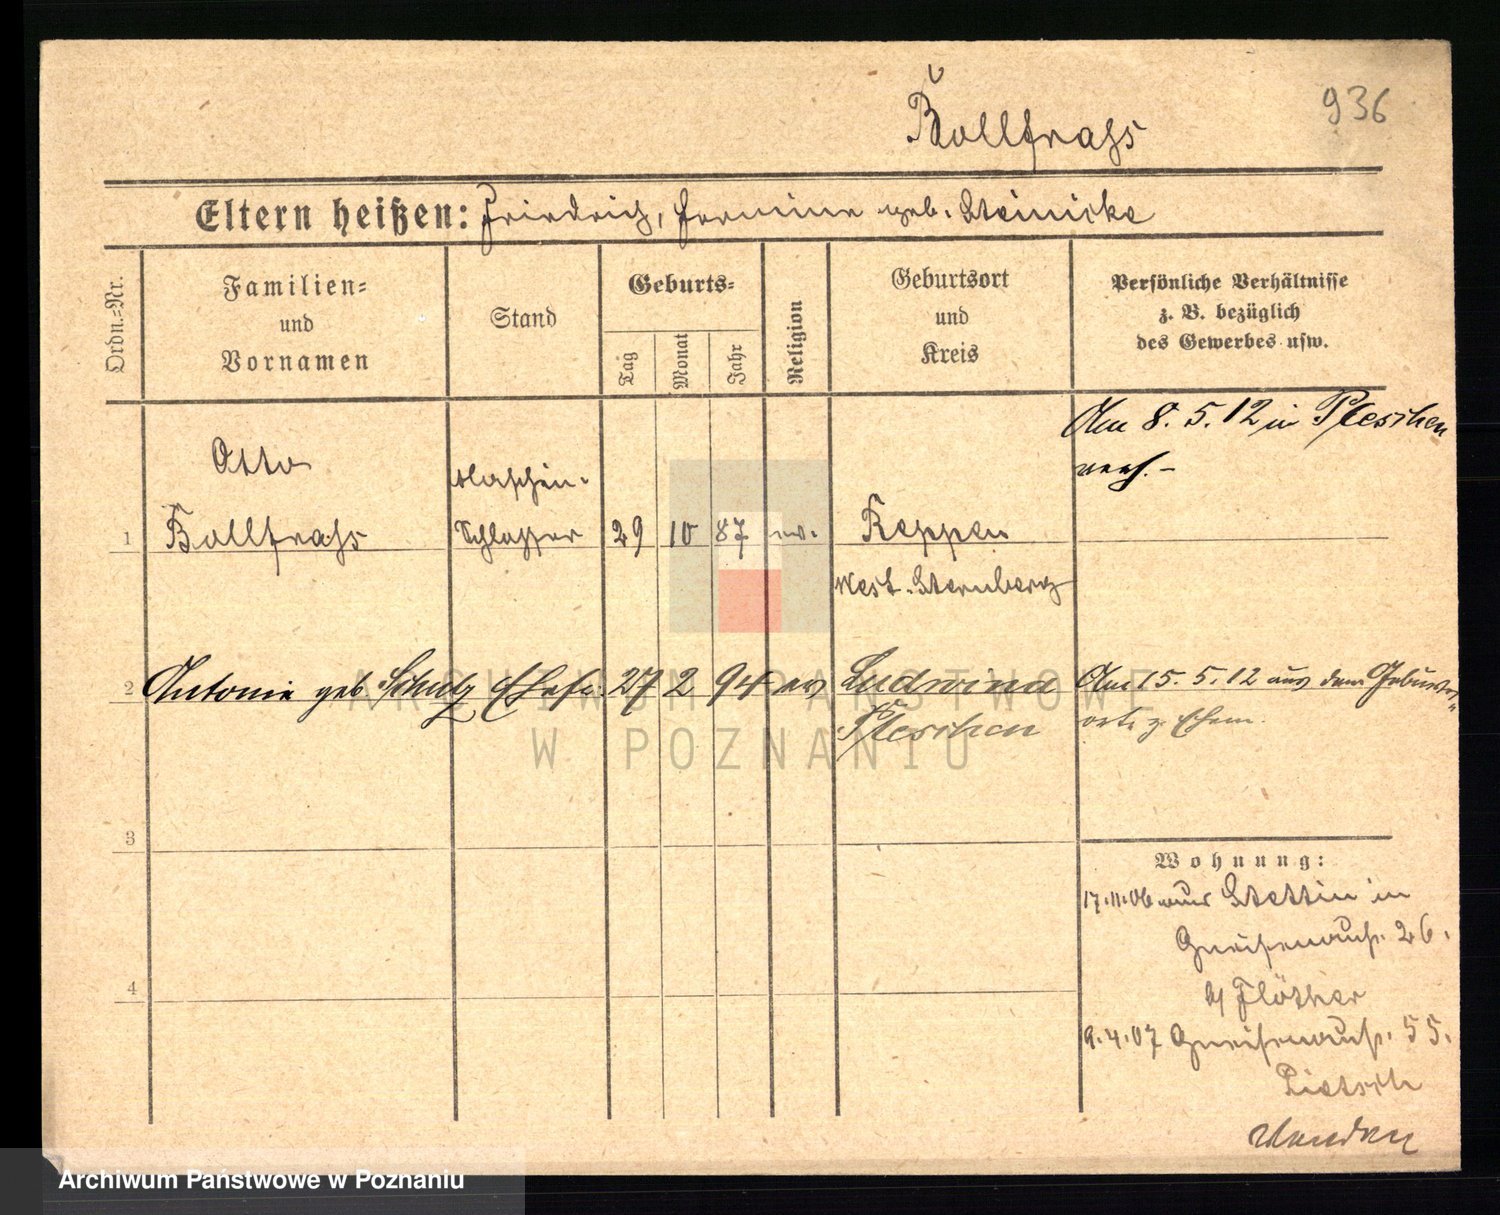 Bollfrass
936
Eltern heißen: Friedrich, Hermine geb. Steinicke
Ordn.-Nr.
Familien-
und
Vornamen
Stand
Geburts-
Tag
Monat
Jahr
Religion
Geburtsort
und
Kreis
Persönliche Verhältnisse
z. B. bezüglich
des Gewerbes usw.
Am 8. 5. 12 in Pleschen
verh. -
Otto
Maschin.-
1 Bollfrass Schlosser 29 10 87 ev. Reppen
West-Sternberg
2 Antonie geb. Schulz Ehefr. 27 2 94 ev Ludwina
Am 15. 5. 12 aus dem Geburts-
Pleschen
orte z. Ehem.
3
Wohnung:
17.11.06 aus Stettin in
Gneisenaustr. 26.
4
b/ Flöther
9.4.07 Gneisenaustr. 55.
Pietsch
ARCHIWUM PAŃSTWOWE
W POZNANIU
Archiwum Państwowe w Poznaniu